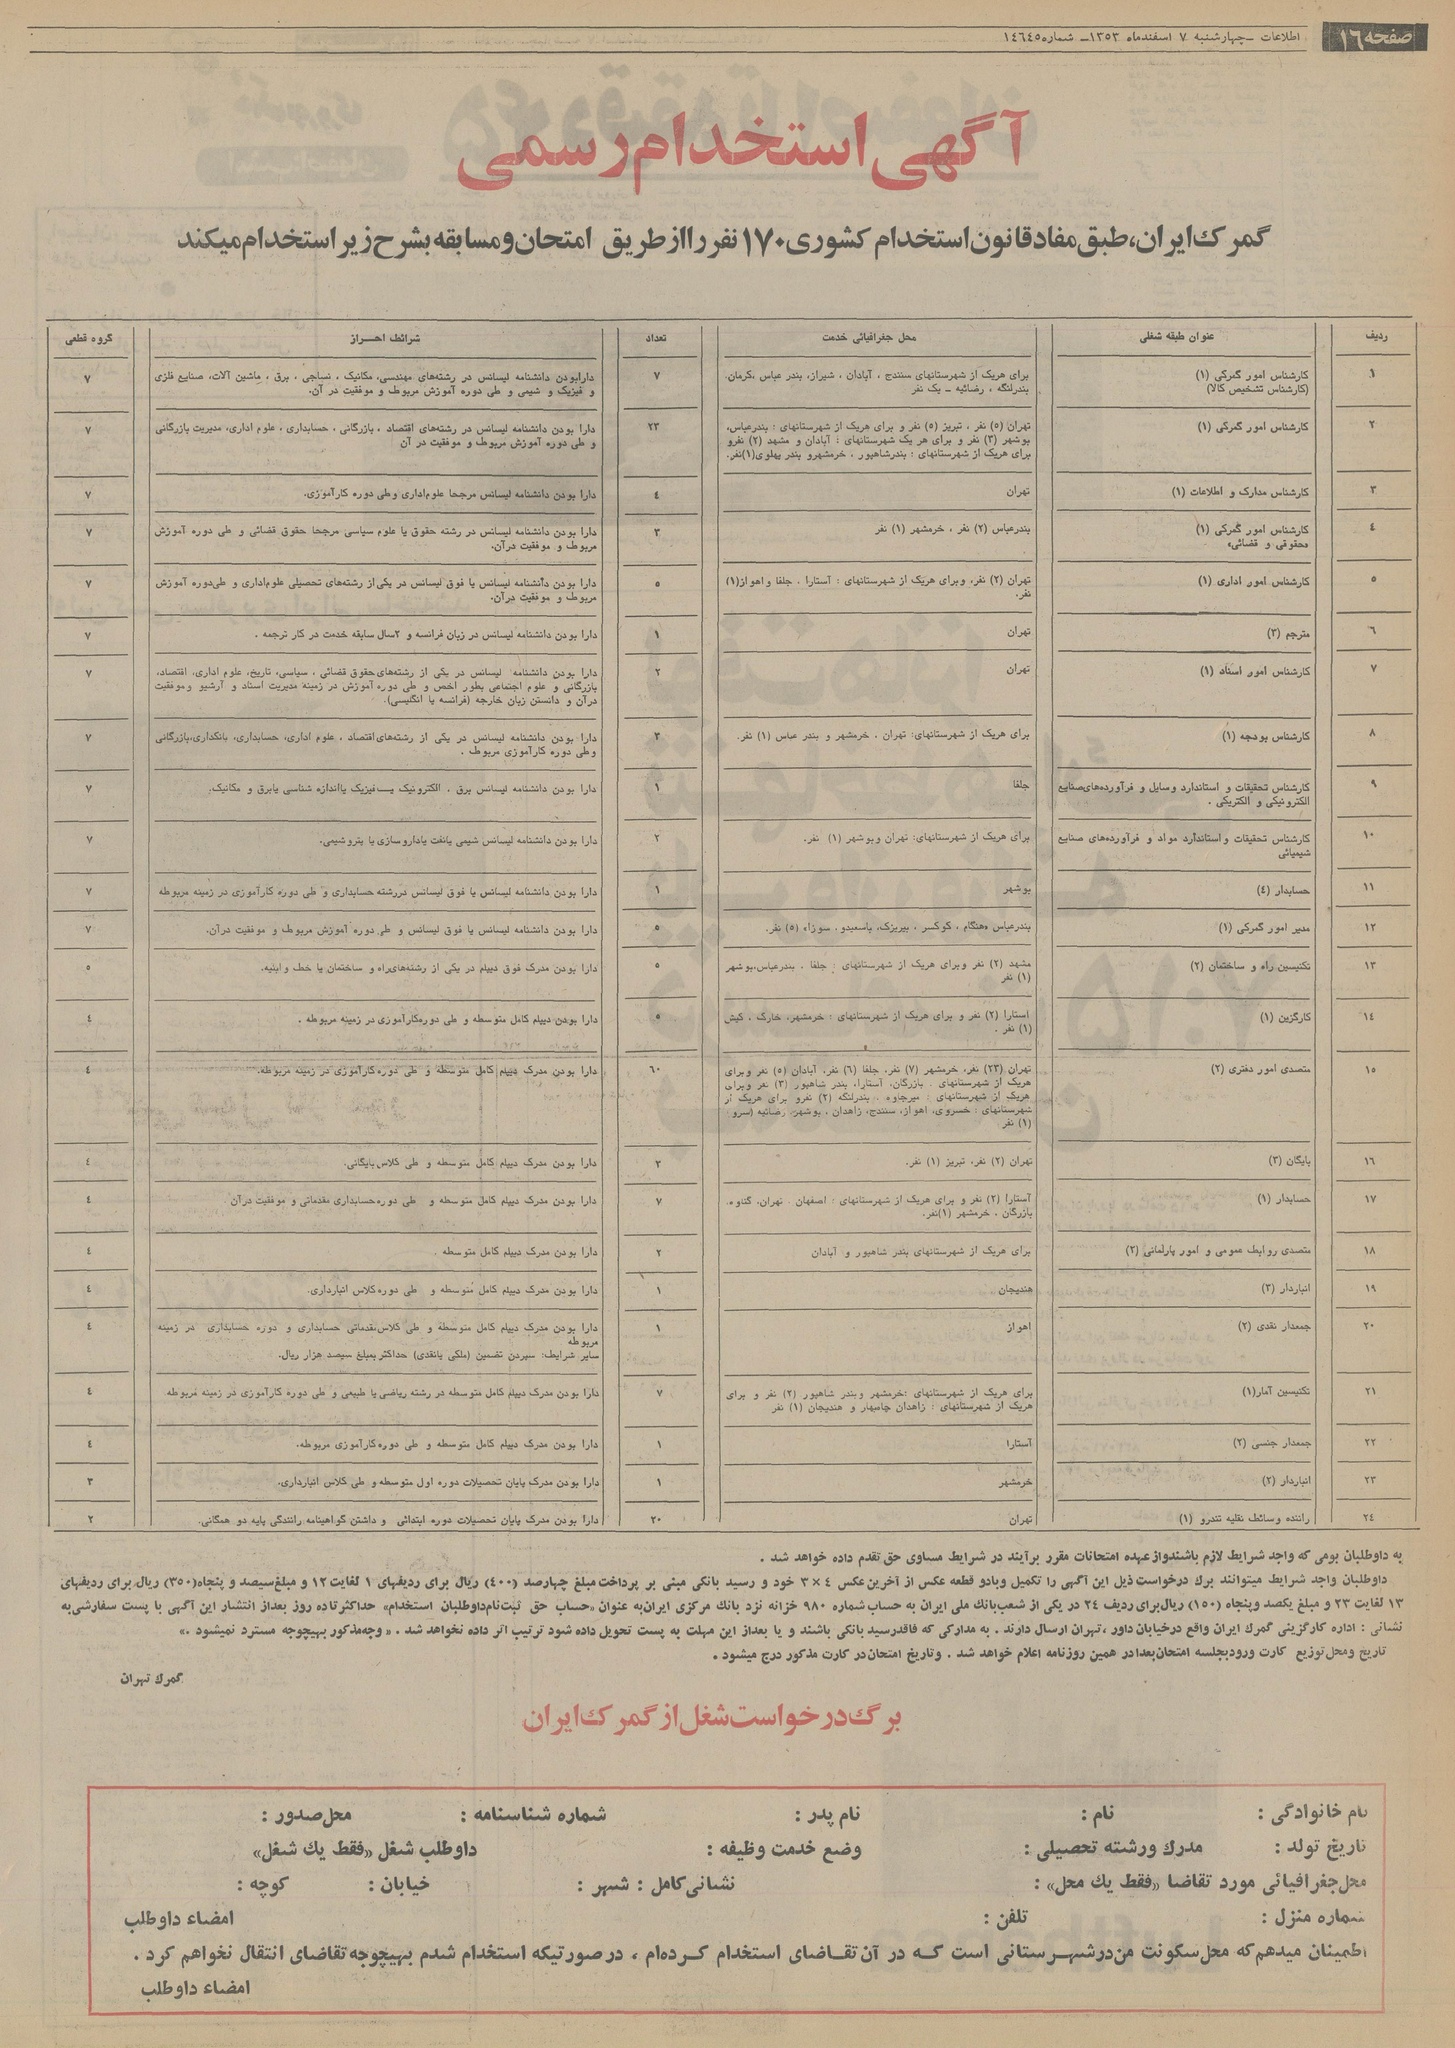 صفحه ۱۶
اطلاعات – چهارشنبه ۷ اسفندماه ۱۳۵۳ – شماره ۱۴۶۴۵
آگهی استخدام رسمی
گمرک ایران، طبق مفاد قانون استخدام کشوری ۱۷۰ نفر را از طریق امتحان و مسابقه بشرح زیر استخدام میکند
ردیف عنوان طبقه شغلی محل جغرافیائی خدمت تعداد شرائط احراز گروه قطعی
۱ کارشناس امور گمرکی (۱) برای هریک از شهرستانهای سنندج ، آبادان ، شیراز، بندر عباس ،کرمان. ۷ دارابودن دانشنامه لیسانس در رشته‌های مهندسی، مکانیک ، نساجی ، برق ، ماشین آلات، صنایع فلزی ۷
(کارشناس تشخیص کالا) بندرلنگه ، رضائیه – یک نفر و فیزیک و شیمی و طی دوره آموزش مربوط و موفقیت در آن.
۲ کارشناس امور گمرکی (۱) تهران (۵) نفر ، تبریز (۵) نفر و برای هریک از شهرستانهای : بندرعباس، ۲۳ دارا بودن دانشنامه لیسانس در رشته‌های اقتصاد ، بازرگانی ، حسابداری ، علوم اداری، مدیریت بازرگانی ۷
بوشهر (۳) نفر و برای هر یک شهرستانهای : آبادان و مشهد (۲) نفرو و طی دوره آموزش مربوط و موفقیت در آن
برای هریک از شهرستانهای : بندرشاهپور ، خرمشهرو بندر پهلوی(۱)نفر.
۳ کارشناس مدارک و اطلاعات (۱) تهران ۴ دارا بودن دانشنامه لیسانس مرجحا علوم‌اداری وطی دوره کارآموزی. ۷
۴ کارشناس امور گمرکی (۱) بندرعباس (۲) نفر ، خرمشهر (۱) نفر ۳ دارا بودن دانشنامه لیسانس در رشته حقوق یا علوم سیاسی مرجحا حقوق قضائی و طی دوره آموزش ۷
«حقوقی و قضائی» مربوط و موفقیت درآن.
۵ کارشناس امور اداری (۱) تهران (۲) نفر، وبرای هریک از شهرستانهای : آستارا ، جلفا واهواز(۱) ۵ دارا بودن دانشنامه لیسانس یا فوق لیسانس در یکی‌از رشته‌های تحصیلی علوم‌اداری و طی‌دوره آموزش ۷
نفر. مربوط و موفقیت درآن.
۶ مترجم (۳) تهران ۱ دارا بودن دانشنامه لیسانس در زبان فرانسه و ۲سال سابقه خدمت در کار ترجمه . ۷
۷ کارشناس امور اسناد (۱) تهران ۲ دارا بودن دانشنامه لیسانس در یکی از رشته‌های حقوق قضائی ، سیاسی، تاریخ، علوم اداری، اقتصاد، ۷
بازرگانی و علوم اجتماعی بطور اخص و طی دوره آموزش در زمینه مدیریت اسناد و آرشیو وموفقیت
درآن و دانستن زبان خارجه (فرانسه یا انگلیسی).
۸ کارشناس بودجه (۱) برای هریک از شهرستانهای: تهران ، خرمشهر و بندر عباس (۱) نفر. ۳ دارا بودن دانشنامه لیسانس در یکی از رشته‌های‌اقتصاد ، علوم اداری، حسابداری، بانکداری،بازرگانی ۷
وطی دوره کارآموزی مربوط .
۹ کارشناس تحقیقات و استاندارد وسایل و فرآورده‌های‌صنایع جلفا ۱ دارا بودن دانشنامه لیسانس برق ، الکترونیک یا فیزیک یااندازه شناسی یابرق و مکانیک. ۷
الکترونیکی و الکتریکی .
۱۰ کارشناس تحقیقات واستاندارد مواد و فرآورده‌های صنایع برای هریک از شهرستانهای: تهران وبوشهر (۱) نفر. ۲ دارا بودن دانشنامه لیسانس شیمی یانفت یاداروسازی یا پتروشیمی. ۷
شیمیائی
۱۱ حسابدار (۴) بوشهر ۱ دارا بودن دانشنامه لیسانس یا فوق لیسانس دررشته حسابداری و طی دوره کارآموزی در زمینه مربوطه ۷
۱۲ مدیر امور گمرکی (۱) بندرعباس «هنگام ، کوکسر ، بیریزک، باسعیدو، سوزا» (۵) نفر. ۵ دارا بودن دانشنامه لیسانس یا فوق لیسانس و طی دوره آموزش مربوط و موفقیت درآن. ۷
۱۳ تکنیسین راه و ساختمان (۲) مشهد (۲) نفر وبرای هریک از شهرستانهای : جلفا ، بندرعباس،بوشهر ۵ دارا بودن مدرک فوق دیپلم در یکی از رشته‌های‌راه و ساختمان یا خط وابنیه. ۵
(۱) نفر
۱۴ کارگزین (۱) آستارا (۲) نفر و برای هریک از شهرستانهای : خرمشهر، خارک ، کیش ۵ دارا بودن دیپلم کامل متوسطه و طی دوره‌کارآموزی در زمینه مربوطه . ۴
(۱) نفر .
۱۵ متصدی امور دفتری (۲) تهران (۲۳) نفر، خرمشهر (۷) نفر، جلفا (۶) نفر، آبادان (۵) نفر وبرای ۶۰ دارا بودن مدرک دیپلم کامل متوسطه و طی دوره کارآموزی در زمینه مربوطه. ۴
هریک از شهرستانهای بازرگان، آستارا، بندر شاهپور (۳) نفر وبرای
هریک از شهرستانهای : میرجاوه ، بندرلنگه (۲) نفرو برای هریک از
شهرستانهای : خسروی، اهواز، سنندج، زاهدان ، بوشهر، رضائیه (سرو)
(۱) نفر
۱۶ بایگان (۳) تهران (۲) نفر، تبریز (۱) نفر. ۳ دارا بودن مدرک دیپلم کامل متوسطه و طی کلاس بایگانی. ۴
۱۷ حسابدار (۱) آستارا (۲) نفر و برای هریک از شهرستانهای : اصفهان تهران، گناوه، ۷ دارا بودن مدرک دیپلم کامل متوسطه و طی دوره حسابداری مقدماتی و موفقیت درآن ۴
بازرگان ، خرمشهر (۱)نفر.
۱۸ متصدی روابط عمومی و امور پارلمانی (۲) برای هریک از شهرستانهای بندر شاهپور و آبادان ۲ دارا بودن مدرک دیپلم کامل متوسطه . ۴
۱۹ انباردار (۳) هندیجان ۱ دارا بودن مدرک دیپلم کامل متوسطه و طی دوره کلاس انبارداری. ۴
۲۰ جمعدار نقدی (۲) اهواز ۱ دارا بودن مدرک دیپلم کامل متوسطه و طی کلاس‌مقدماتی حسابداری و دوره حسابداری در زمینه ۴
مربوطه
سایر شرایط: سپردن تضمین (ملکی یانقدی) حداکثر بمبلغ سیصد هزار ریال.
۲۱ تکنیسین آمار(۱) برای هریک از شهرستانهای :خرمشهر وبندر شاهپور (۲) نفر و برای ۷ دارا بودن مدرک دیپلم کامل متوسطه در رشته ریاضی یا طبیعی و طی دوره کارآموزی در زمینه مربوطه ۴
هریک از شهرستانهای : زاهدان چابهار و هندیجان (۱) نفر
۲۲ جمعدار جنسی (۲) آستارا ۱ دارا بودن مدرک دیپلم کامل متوسطه و طی دوره کارآموزی مربوطه. ۴
۲۳ انباردار (۲) خرمشهر ۱ دارا بودن مدرک پایان تحصیلات دوره اول متوسطه و طی کلاس انبارداری. ۳
۲۴ راننده وسائط نقلیه تندرو (۱) تهران ۲۰ دارا بودن مدرک پایان تحصیلات دوره ابتدائی و داشتن گواهینامه رانندگی پایه دو همگانی. ۲
به داوطلبان بومی که واجد شرایط لازم باشندواز عهده امتحانات مقرر برآیند در شرایط مساوی حق تقدم داده خواهد شد .
داوطلبان واجد شرایط میتوانند برگ درخواست ذیل این آگهی را تکمیل وبادو قطعه عکس از آخرین عکس ۴×۳ خود و رسید بانکی مبنی بر پرداخت مبلغ چهارصد (۴۰۰) ریال برای ردیفهای ۱ لغایت ۱۲ و مبلغ سیصد و پنجاه(۳۵۰) ریال برای ردیفهای
۱۳ لغایت ۲۳ و مبلغ یکصد وپنجاه (۱۵۰) ریال‌برای ردیف ۲۴ در یکی از شعب‌بانک ملی ایران به حساب شماره ۹۸۰ خزانه نزد بانک مرکزی ایران‌به عنوان «حساب حق ثبت‌نام‌داوطلبان استخدام» حداکثر تاده روز بعداز انتشار این آگهی با پست سفارشی‌به
نشانی : اداره کارگزینی گمرک ایران واقع درخیابان داور ،تهران ارسال دارند . به مدارکی که فاقدرسید بانکی باشند و یا بعداز این مهلت به پست تحویل داده شود ترتیب اثر داده نخواهد شد . « وجه‌مذکور بهیچوجه مسترد نمیشود .»
تاریخ ومحل توزیع کارت ورودبجلسه امتحان‌بعدادر همین روزنامه اعلام خواهد شد . وتاریخ امتحان‌در کارت مذکور درج میشود .
گمرک تهران
برگ درخواست شغل از گمرک ایران
نام خانوادگی : نام : نام پدر : شماره شناسنامه : محل صدور :
تاریخ تولد : مدرک ورشته تحصیلی : وضع خدمت وظیفه : داوطلب شغل «فقط یک شغل»
محل جغرافیائی مورد تقاضا «فقط یک محل» : نشانی کامل : شهر : خیابان : کوچه :
شماره منزل : تلفن : امضاء داوطلب
اطمینان میدهم که محل سکونت من درشهرستانی است که در آن تقاضای استخدام کرده‌ام ، در صورتیکه استخدام شدم بهیچوجه تقاضای انتقال نخواهم کرد .
امضاء داوطلب